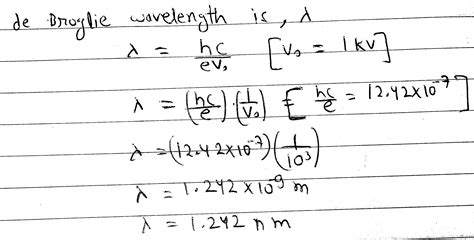 de Broglie wavelength is, λ
λ = hc/eV₀ [V₀ = 1 kV]
λ = (hc/e)·(1/V₀) [hc/e = 12.42×10⁻⁷]
λ = (12.42×10⁻⁷)(1/10³)
λ = 1.242 × 10⁻⁹ m
λ = 1.242 nm